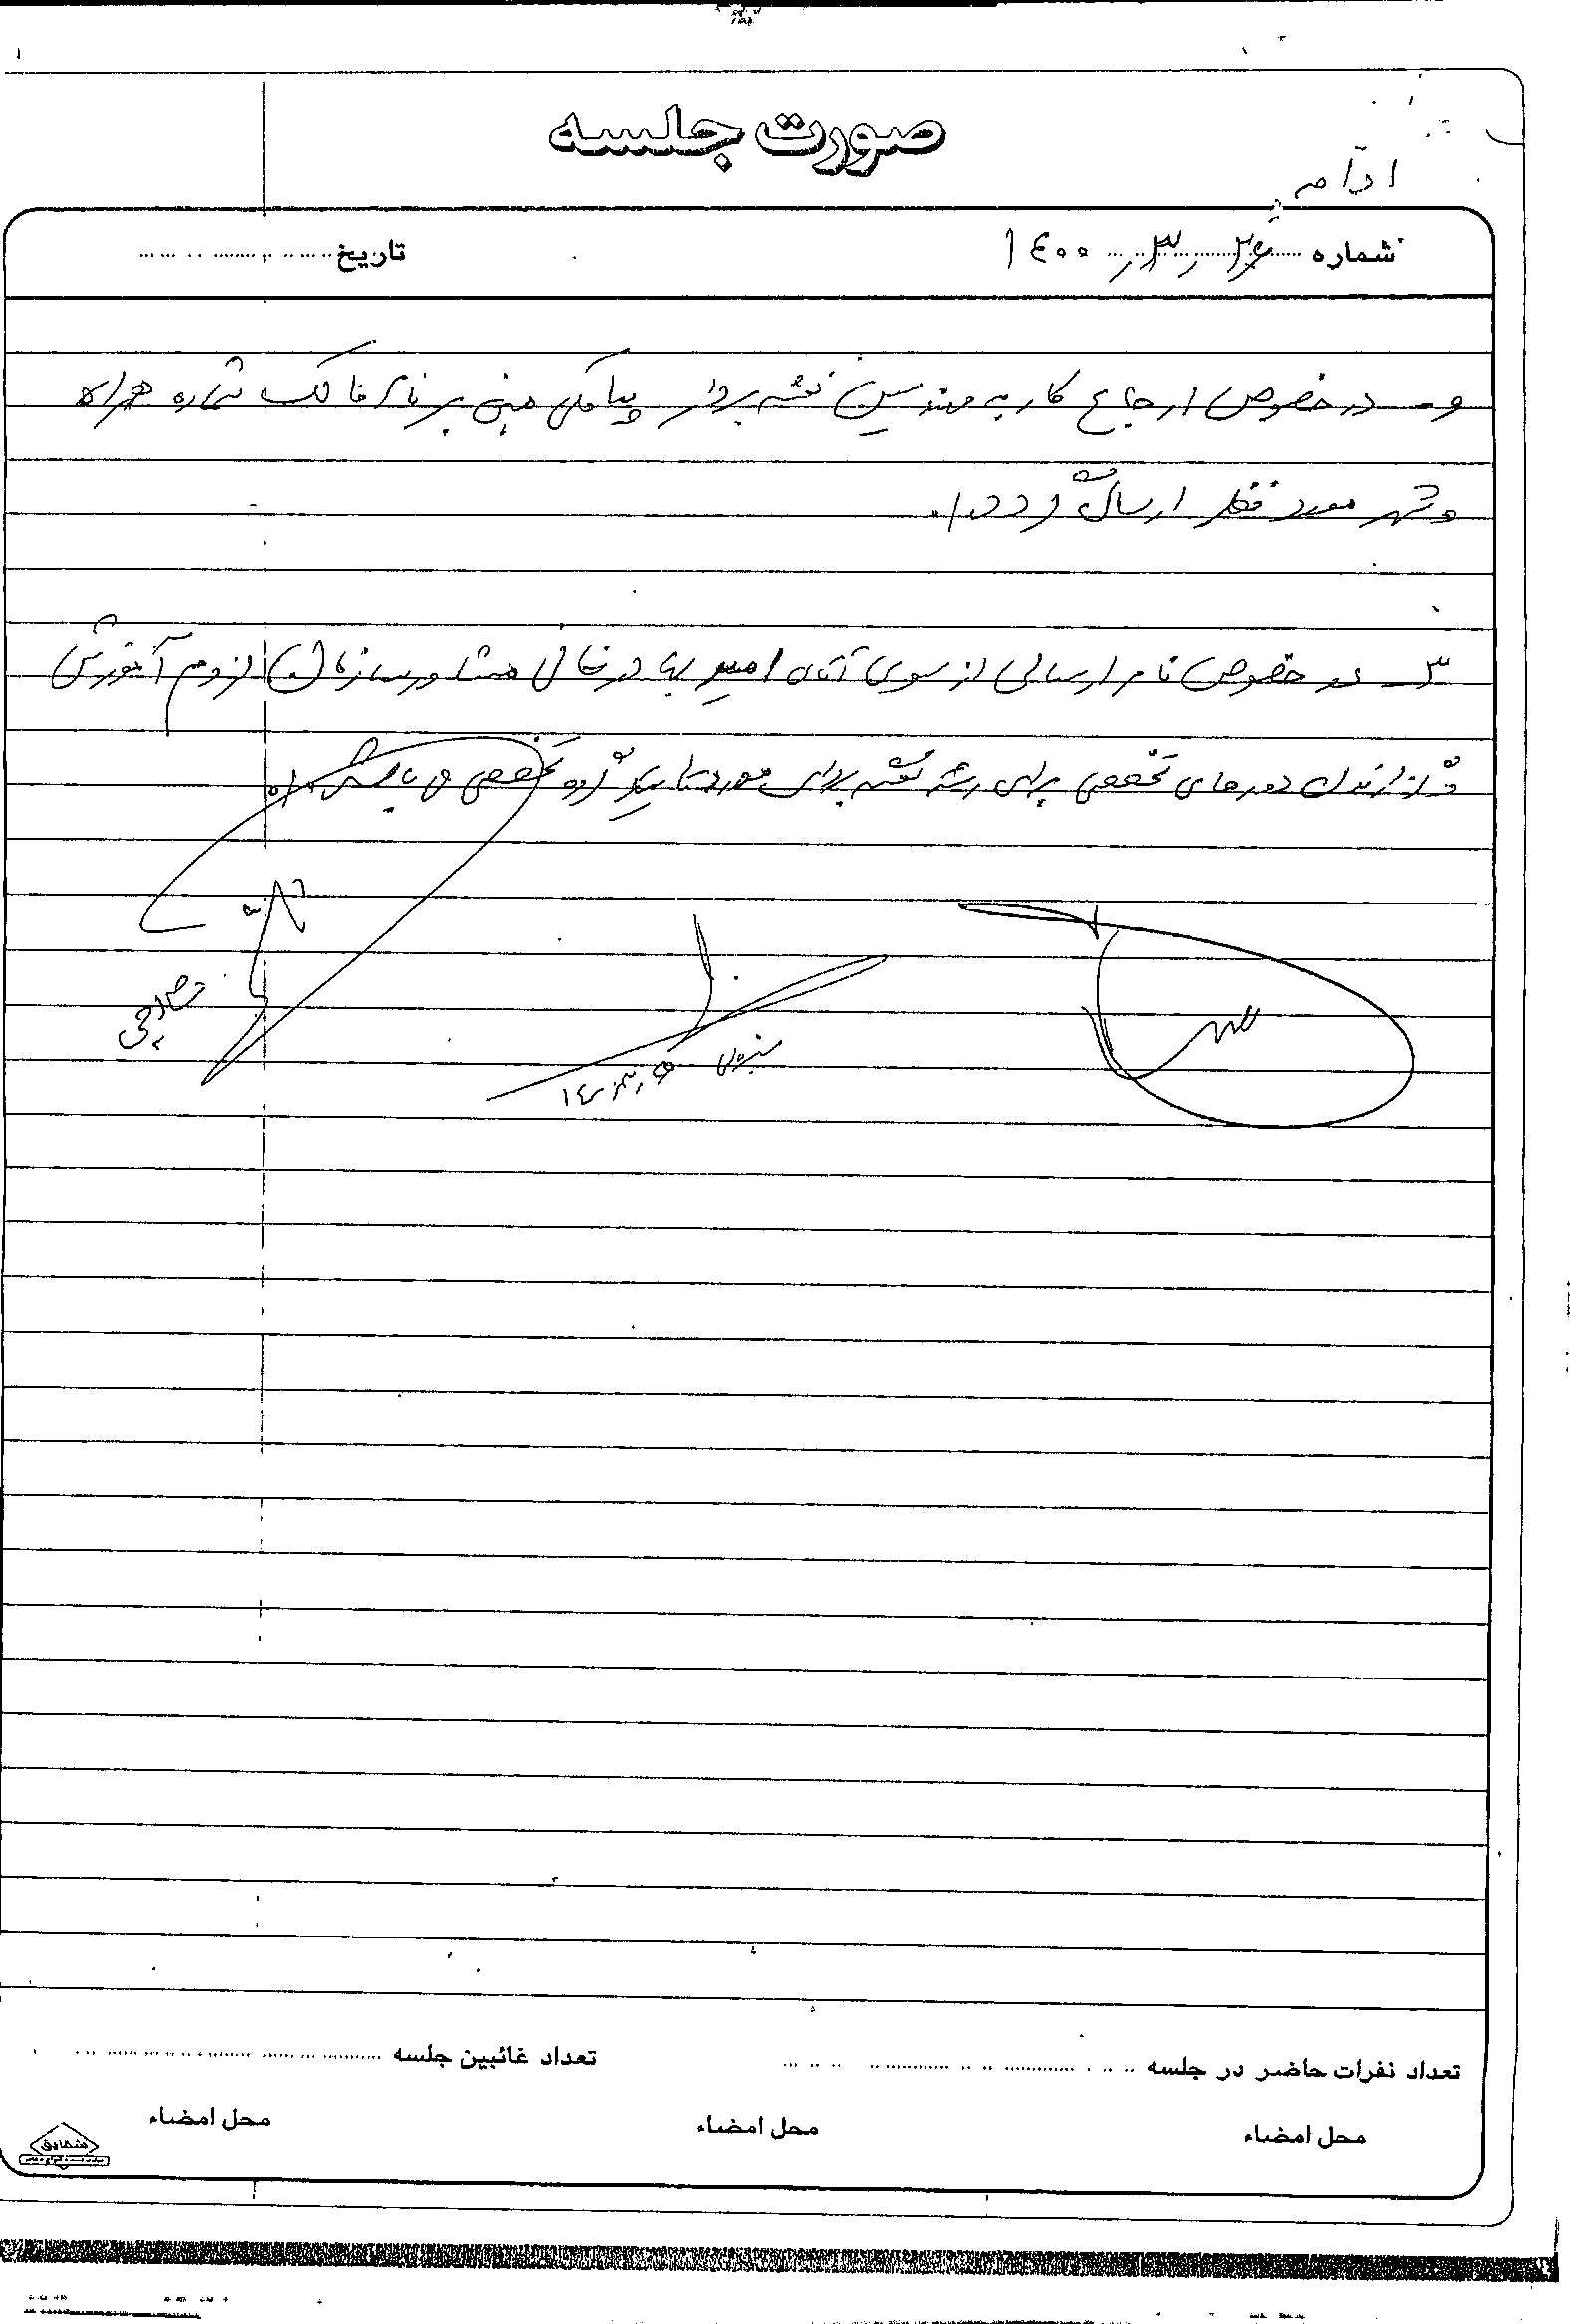 صورت جلسه
ادامه
شماره ۱۴۰۰/۳/۲۶
تاریخ
و- در خصوص ارجاع کار به مهندسین نقشه بردار پیامکی مبنی بر نام مالک شماره همراه
و شهر مورد نظر ارسال گردد.
۳- در خصوص نامه ارسالی از سوی آقای امیر مشاور سازمان لزوم آموزش
دوره های تخصصی برای رشته نقشه برداری مورد تایید گروه تخصصی می باشد.
تعداد نفرات حاضر در جلسه
تعداد غائبین جلسه
محل امضاء
محل امضاء
محل امضاء